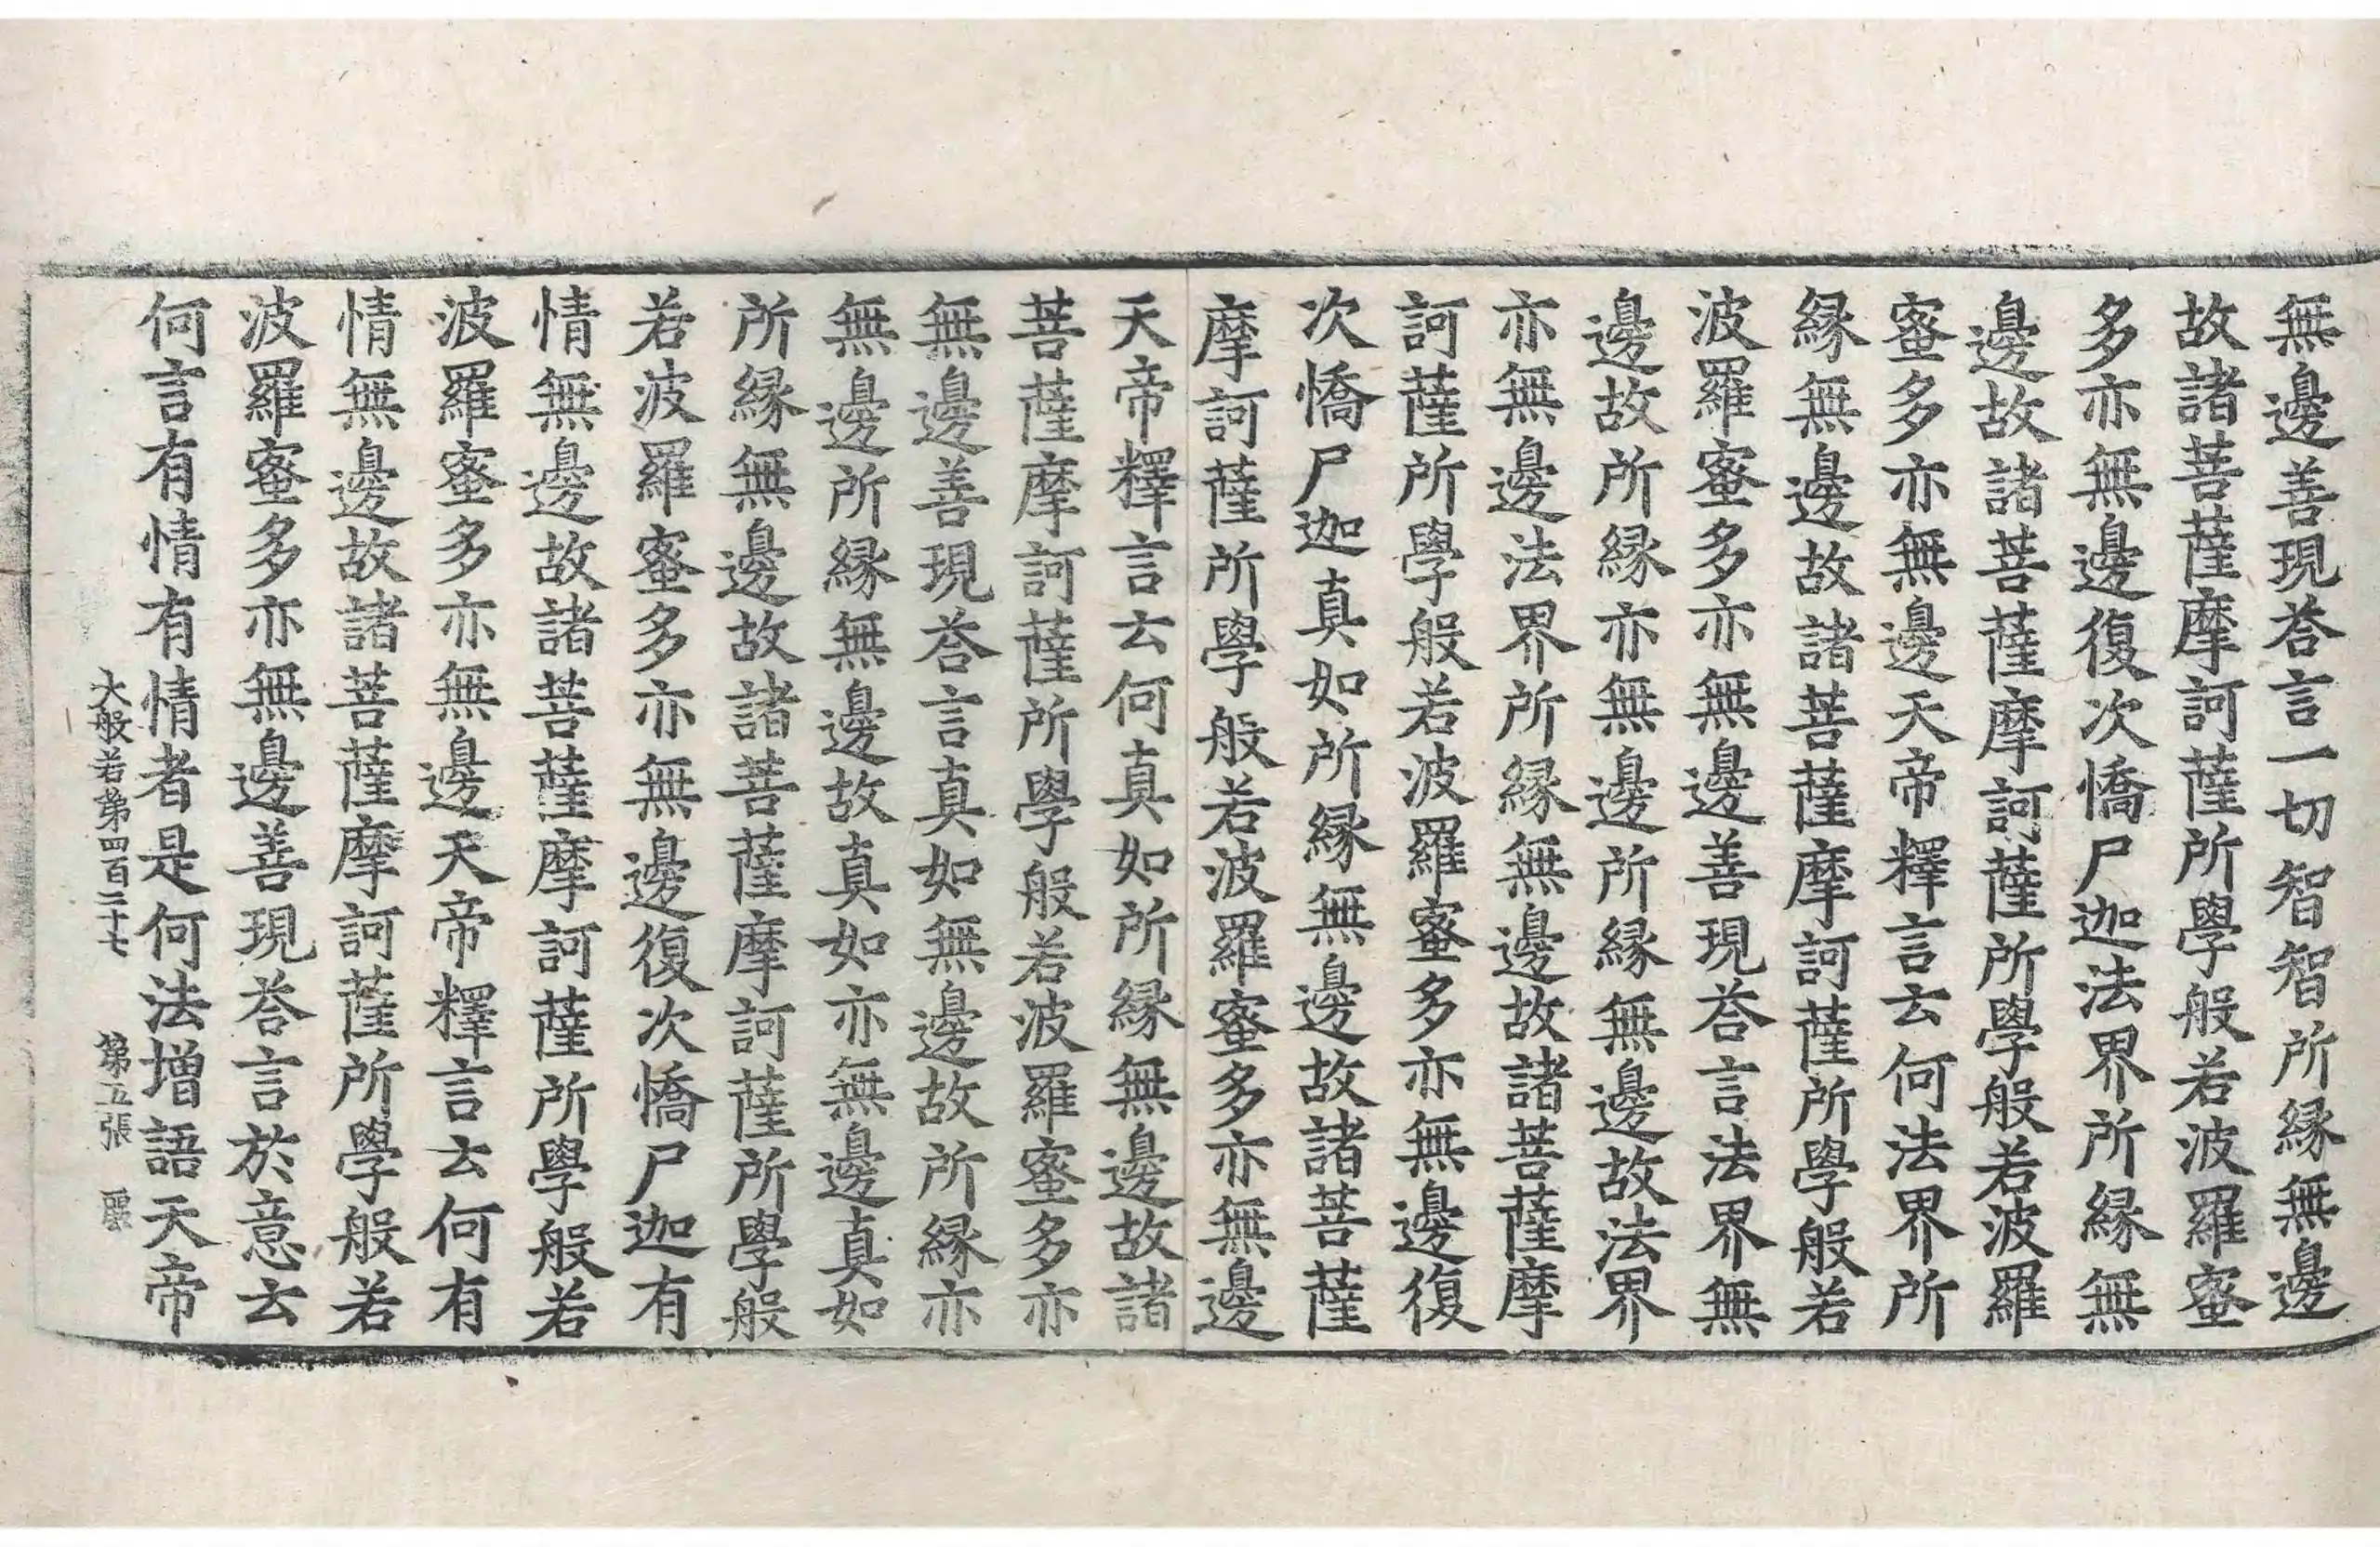 無邊善現荅言一切智智所縁無邊
故諸菩薩摩訶薩所學般若波羅蜜
多亦無邊復次憍尸迦法界所縁無
邊故諸菩薩摩訶薩所學般若波羅
蜜多亦無邊天帝釋言云何法界所
縁無邊故諸菩薩摩訶薩所學般若
波羅蜜多亦無邊善現荅言法界無
邊故所縁亦無邊所縁無邊故法界
亦無邊法界所縁無邊故諸菩薩摩
訶薩所學般若波羅蜜多亦無邊復
次憍尸迦真如所縁無邊故諸菩薩
摩訶薩所學般若波羅蜜多亦無邊
天帝釋言云何真如所縁無邊故諸
菩薩摩訶薩所學般若波羅蜜多亦
無邊善現荅言真如無邊故所縁亦
無邊所縁無邊故真如亦無邊真如
所縁無邊故諸菩薩摩訶薩所學般
若波羅蜜多亦無邊復次憍尸迦有
情無邊故諸菩薩摩訶薩所學般若
波羅蜜多亦無邊天帝釋言云何有
情無邊故諸菩薩摩訶薩所學般若
波羅蜜多亦無邊善現荅言於意云
何言有情有情者是何法增語天帝
大般若第四百二十七 第五張